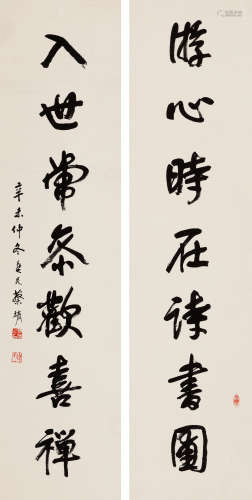 游心時在詩書圃
入世常參歡喜禪
辛未仲冬